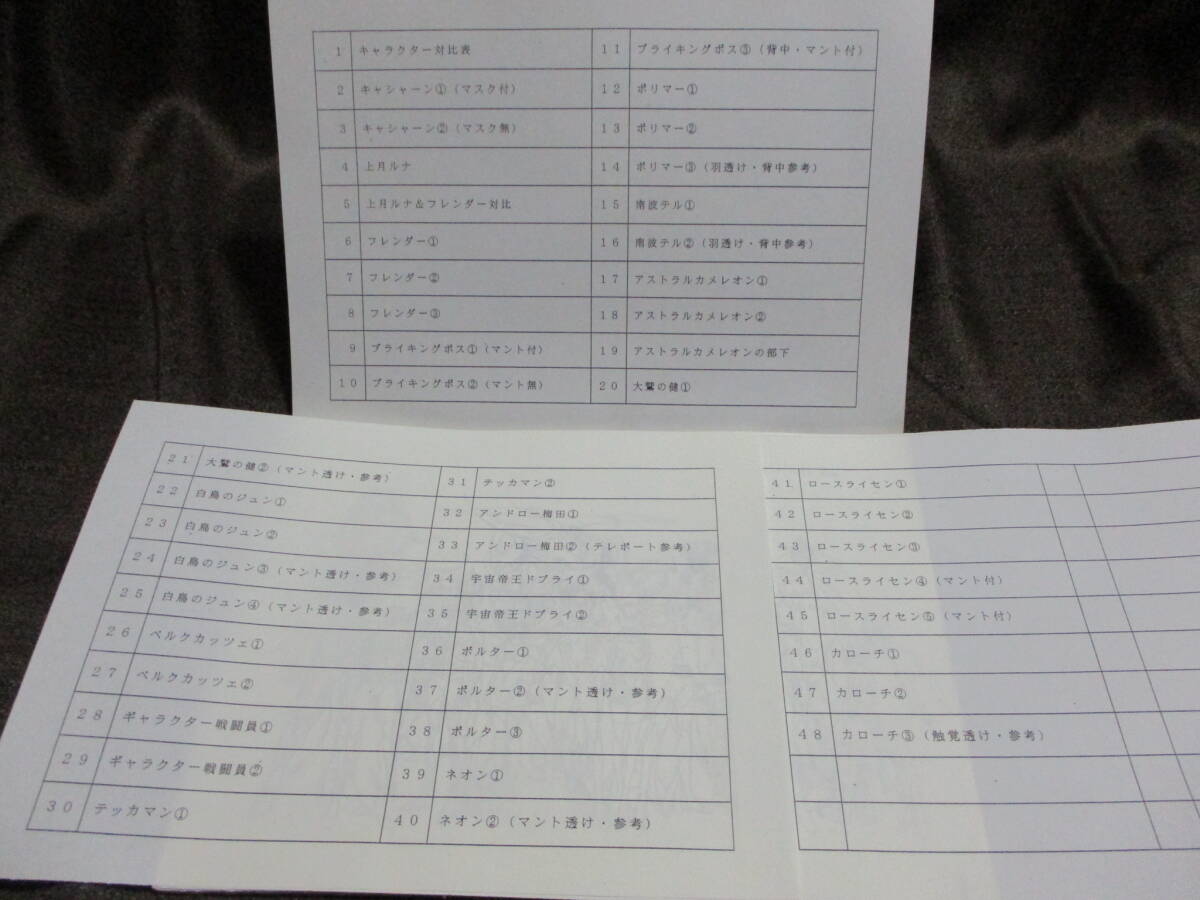 1 キャラクター対比表
2 キャシャーン①(マスク付)
3 キャシャーン②(マスク無)
4 上月ルナ
5 上月ルナ&フレンダー対比
6 フレンダー①
7 フレンダー②
8 フレンダー③
9 ブライキングボス①(マント付)
10 ブライキングボス②(マント無)
11 ブライキングボス③(背中・マント付)
12 ポリマー①
13 ポリマー②
14 ポリマー③(羽透け・背中参考)
15 南波テル①
16 南波テル②(羽透け・背中参考)
17 アストラルカメレオン①
18 アストラルカメレオン②
19 アストラルカメレオンの部下
20 大鷲の健①
21 大鷲の健②(マント透け・参考)
22 白鳥のジュン①
23 白鳥のジュン②
24 白鳥のジュン③(マント透け・参考)
25 白鳥のジュン④(マント透け・参考)
26 ベルクカッツェ①
27 ベルクカッツェ②
28 ギャラクター戦闘員①
29 ギャラクター戦闘員②
30 テッカマン①
31 テッカマン②
32 アンドロー梅田①
33 アンドロー梅田②(テレポート参考)
34 宇宙帝王ドブライ①
35 宇宙帝王ドブライ②
36 ボルター①
37 ボルター②(マント透け・参考)
38 ボルター③
39 ネオン①
40 ネオン②(マント透け・参考)
41 ロースライセン①
42 ロースライセン②
43 ロースライセン③
44 ロースライセン④(マント付)
45 ロースライセン⑤(マント付)
46 カローチ①
47 カローチ②
48 カローチ③(触覚透け・参考)